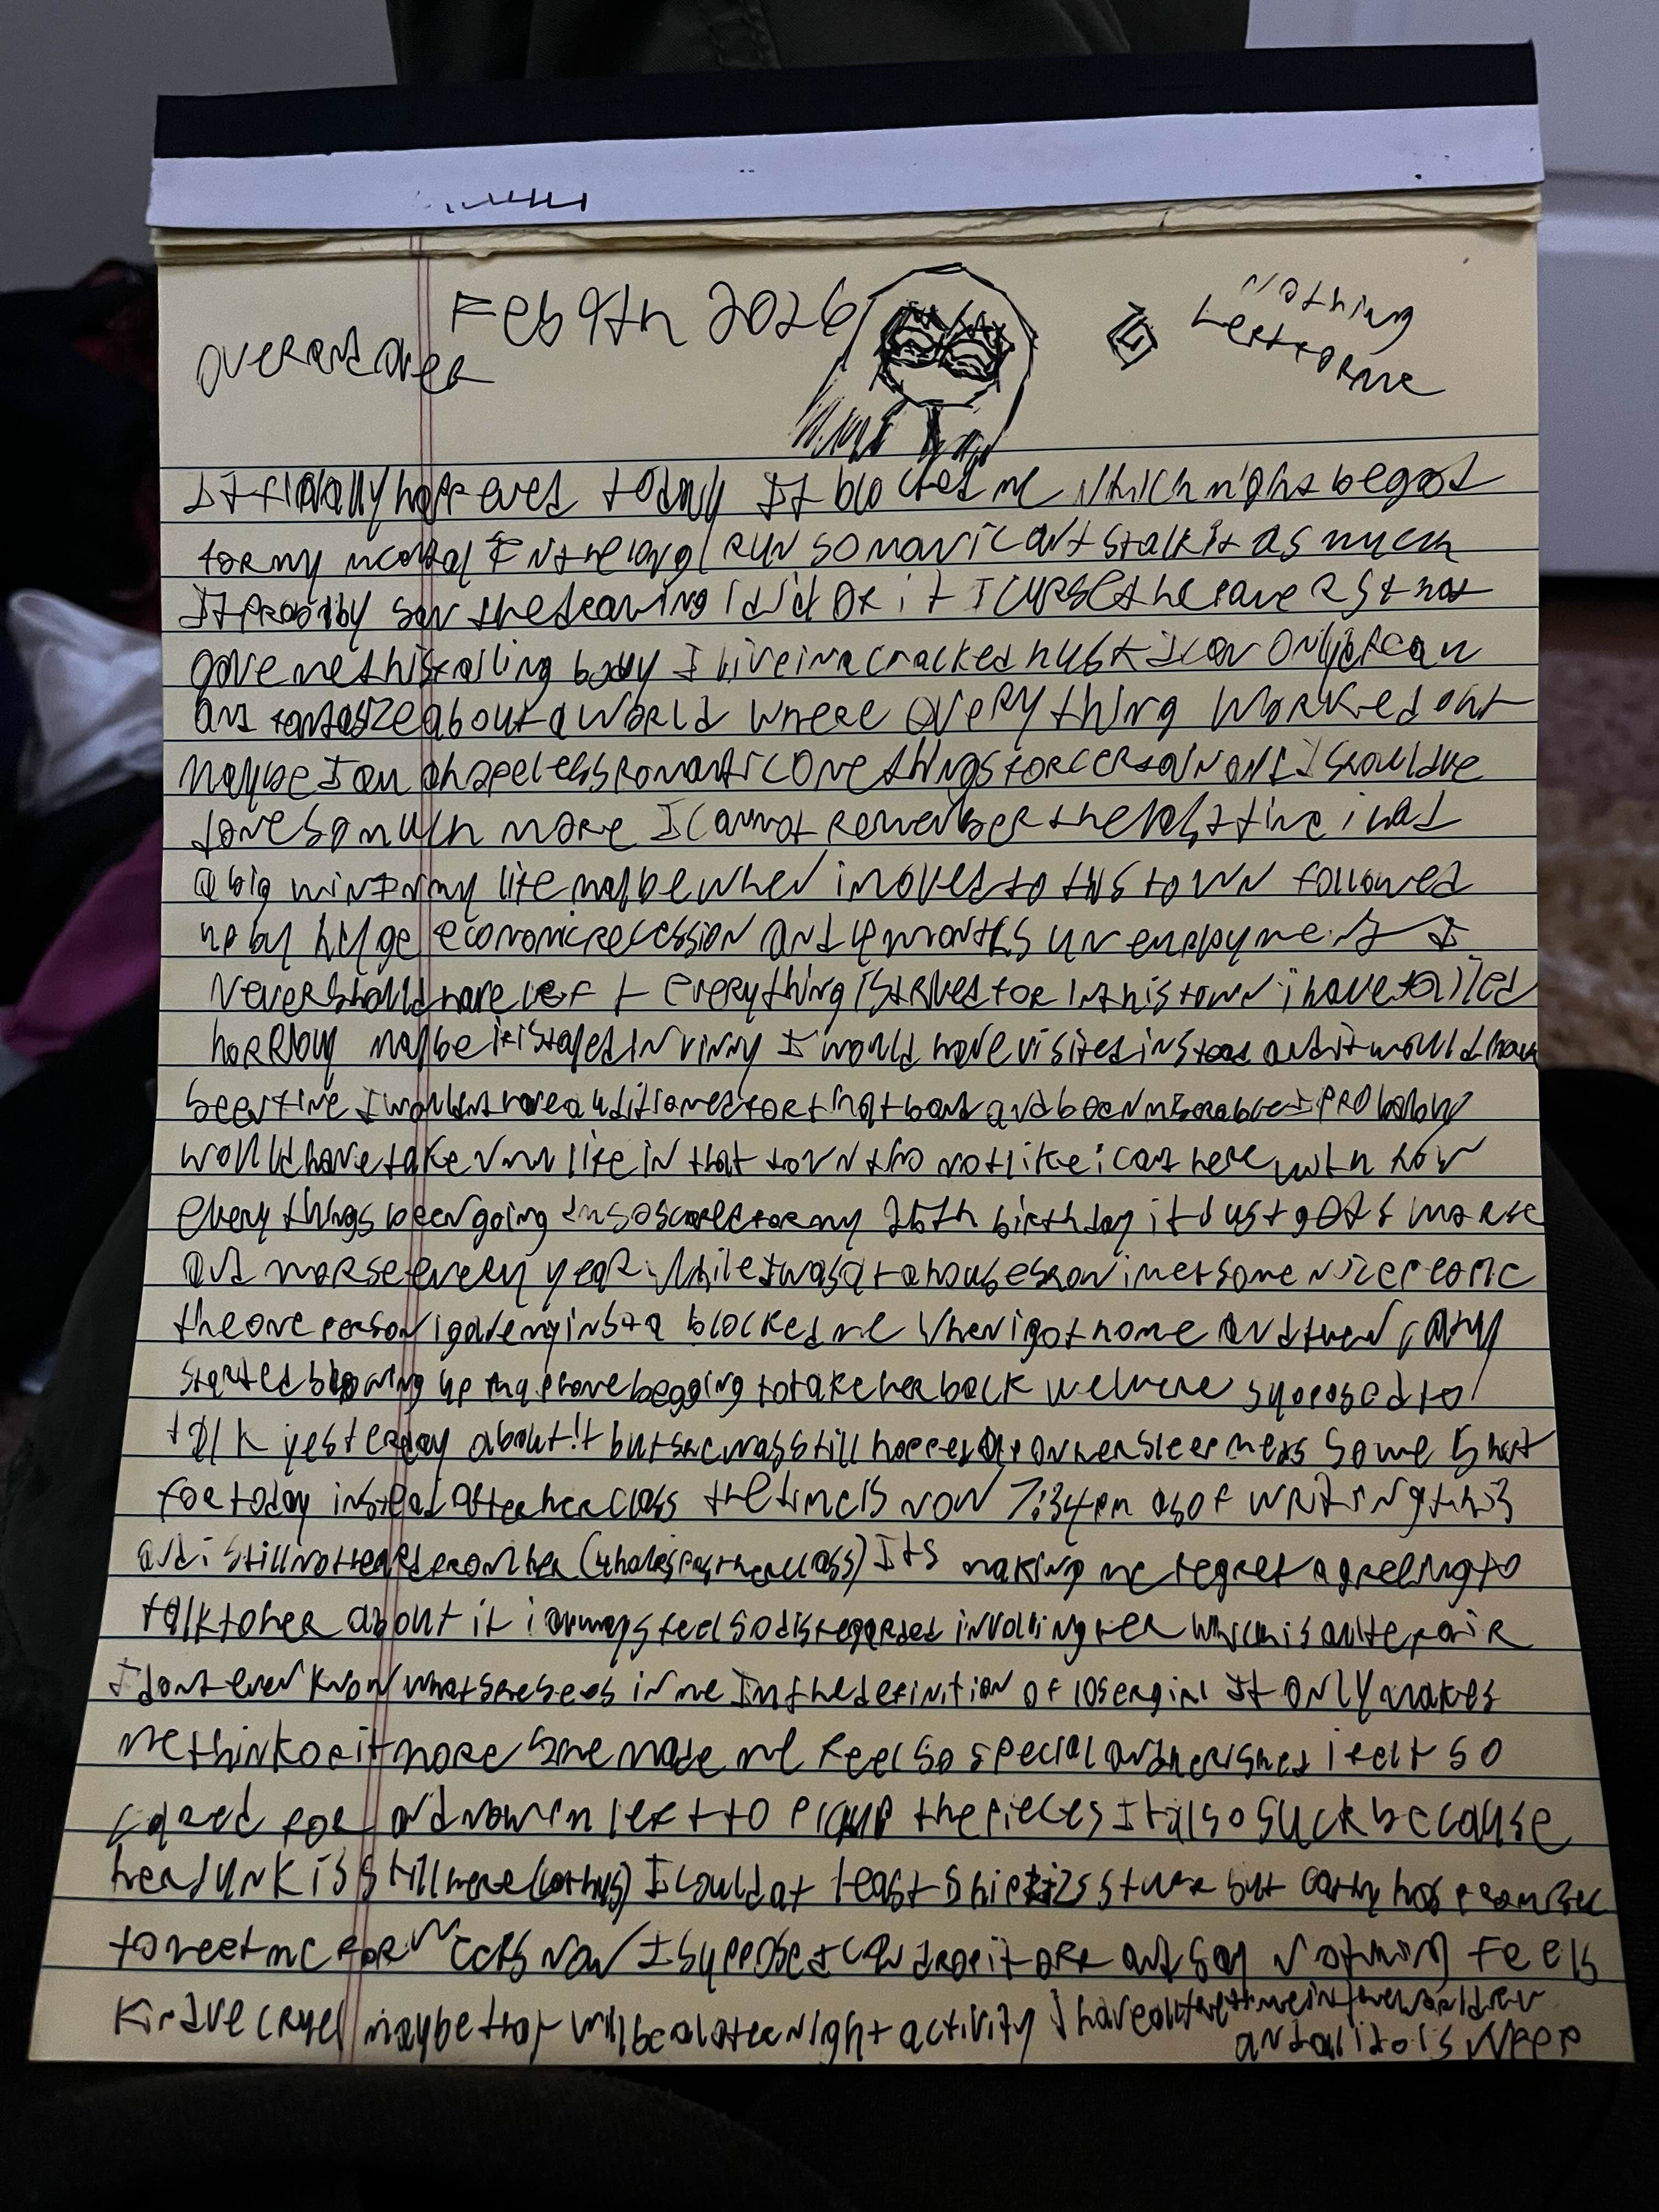 Feb 9th 2026
over and over
Nothing
Left for me
It finally happened today It blocked me which might be good
for my mental in the long run so now i cant stalk it as much
It probably saw the drawing i did of it I curse the
gave me this failing body I live in a cracked husk I can only
and fantasize about a world where everything worked out
Maybe I am a hopeless romantic one things for certain and I should've
done so much more I cannot remember the last time i had
a big win in my life maybe when i moved to this town followed
up by huge economic recession and months unemployment I
never should have left everything i strived for in this town i have failed
horribly maybe if i stayed in I would have visited instead and it would have
been fine I wouldnt have auditioned for that band and been miserable I probably
would have taken my life in that town tho not like i can here with how
everythings been going Im so scared for my 26th birthday it just gets worse
and worse every year. While I was at a house show i met some nice people
the one person i gave my insta blocked me when i got home and then cathy
started blowing up my phone begging to take her back we were supposed to
talk yesterday about it but she was still hopped up on her sleep meds some shit
for today instead after her class the time is now 7:34pm as of writing this
and i still not heard from her (4 hours past her class) Its making me regret agreeing to
talk to her about it i always feel so disregarded involving her which is quite fair
I dont even know what she sees in me Im the definition of loser girl It only makes
me think of it more She made me feel so special and cherished i felt so
cared for and now im left to pickup the pieces It also suck because
her junk is still here (cathys) I could at least ship its stuff but cathy has promised
to meet me for now I suppose I can drop it off and say nothing feels
kindve cruel maybe that will be a later night activity I have all the time in the world
and all i do is weep